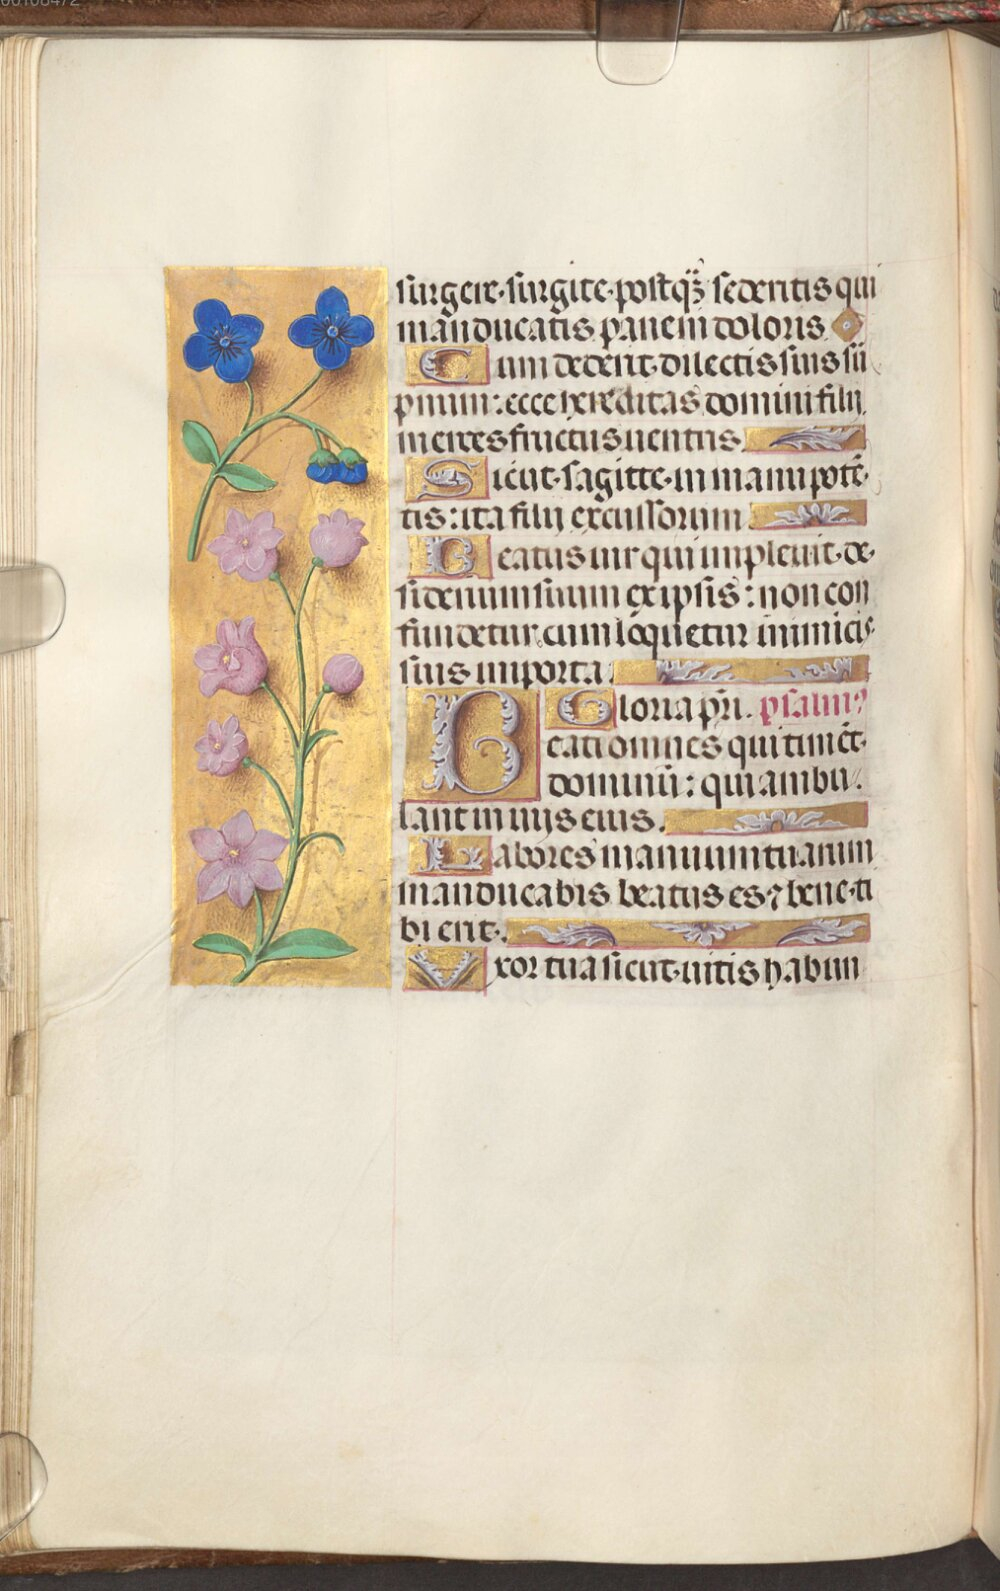 00108472
surgere. surgite. postqȝ sederitis qui
manducatis panem doloris.
Cum dederit dilectis suis sō
pnum: ecce hereditas domini filij
merces fructus uentris.
Sicut sagitte in manu potē
tis: ita filij excussorum
Beatus uir qui impleuit de
siderium suum ex ipsis: non con
fundetur cum loquetur inimicis
suis in porta.
Gloria pr̄i. psalmꝰ
Beati omnes qui timēt
dominū: qui ambu
lant in uijs eius.
Labores manuum tuarum
manducabis beatus es ⁊ bene ti
bi erit.
Vxor tua sicut uitis habun